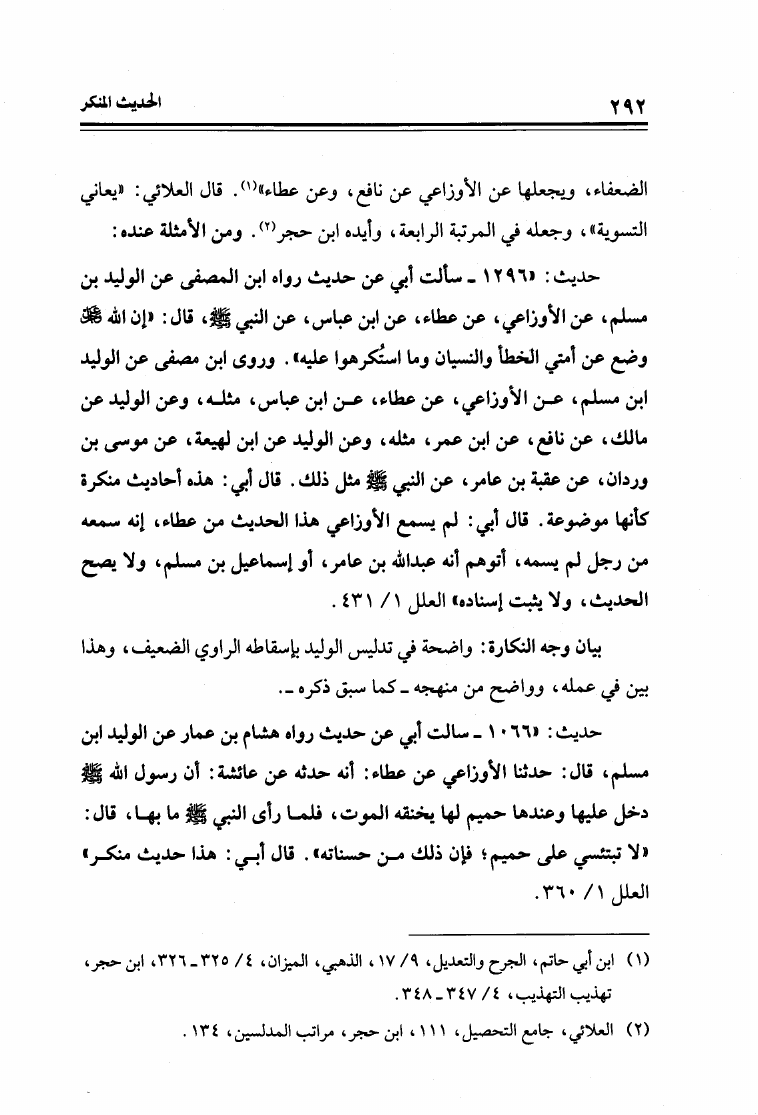 ٢٩٢
الحديث المنكر
الضعفاء، ويجعلها عن الأوزاعي عن نافع، وعن عطاء»(١). قال العلائي: «يعاني
التسوية»، وجعله في المرتبة الرابعة، وأيده ابن حجر(٢). ومن الأمثلة عنده:
حديث: «١٢٩٦ ـ سألت أبي عن حديث رواه ابن المصفى عن الوليد بن
مسلم، عن الأوزاعي، عن عطاء، عن ابن عباس، عن النبي ﷺ، قال: «إن الله ﷻ
وضع عن أمتي الخطأ والنسيان وما استُكرهوا عليه». وروى ابن مصفى عن الوليد
ابن مسلم، عـن الأوزاعي، عن عطاء، عـن ابن عباس، مثلـه، وعن الوليد عن
مالك، عن نافع، عن ابن عمر، مثله، وعن الوليد عن ابن لهيعة، عن موسى بن
وردان، عن عقبة بن عامر، عن النبي ﷺ مثل ذلك. قال أبي: هذه أحاديث منكرة
كأنها موضوعة. قال أبي: لم يسمع الأوزاعي هذا الحديث من عطاء، إنه سمعه
من رجل لم يسمه، أتوهم أنه عبدالله بن عامر، أو إسماعيل بن مسلم، ولا يصح
الحديث، ولا يثبت إسناده» العلل ١/ ٤٣١.
بيان وجه النكارة: واضحة في تدليس الوليد بإسقاطه الراوي الضعيف، وهذا
بين في عمله، وواضح من منهجه ـ كما سبق ذكره ـ.
حديث: «١٠٦٦ ـ سالت أبي عن حديث رواه هشام بن عمار عن الوليد ابن
مسلم، قال: حدثنا الأوزاعي عن عطاء: أنه حدثه عن عائشة: أن رسول الله ﷺ
دخل عليها وعندها حميم لها يخنقه الموت، فلمـا رأى النبي ﷺ ما بهـا، قال:
«لا تبتئسي على حميم؛ فإن ذلك مـن حسناته». قال أبـي: هذا حديث منكـر»
العلل ١/ ٣٦٠.
(١) ابن أبي حاتم، الجرح والتعديل، ٩/ ١٧، الذهبي، الميزان، ٤/ ٣٢٥ـ٣٢٦، ابن حجر،
تهذيب التهذيب، ٤/ ٣٤٧ـ٣٤٨.
(٢) العلائي، جامع التحصيل، ١١١، ابن حجر، مراتب المدلسين، ١٣٤.